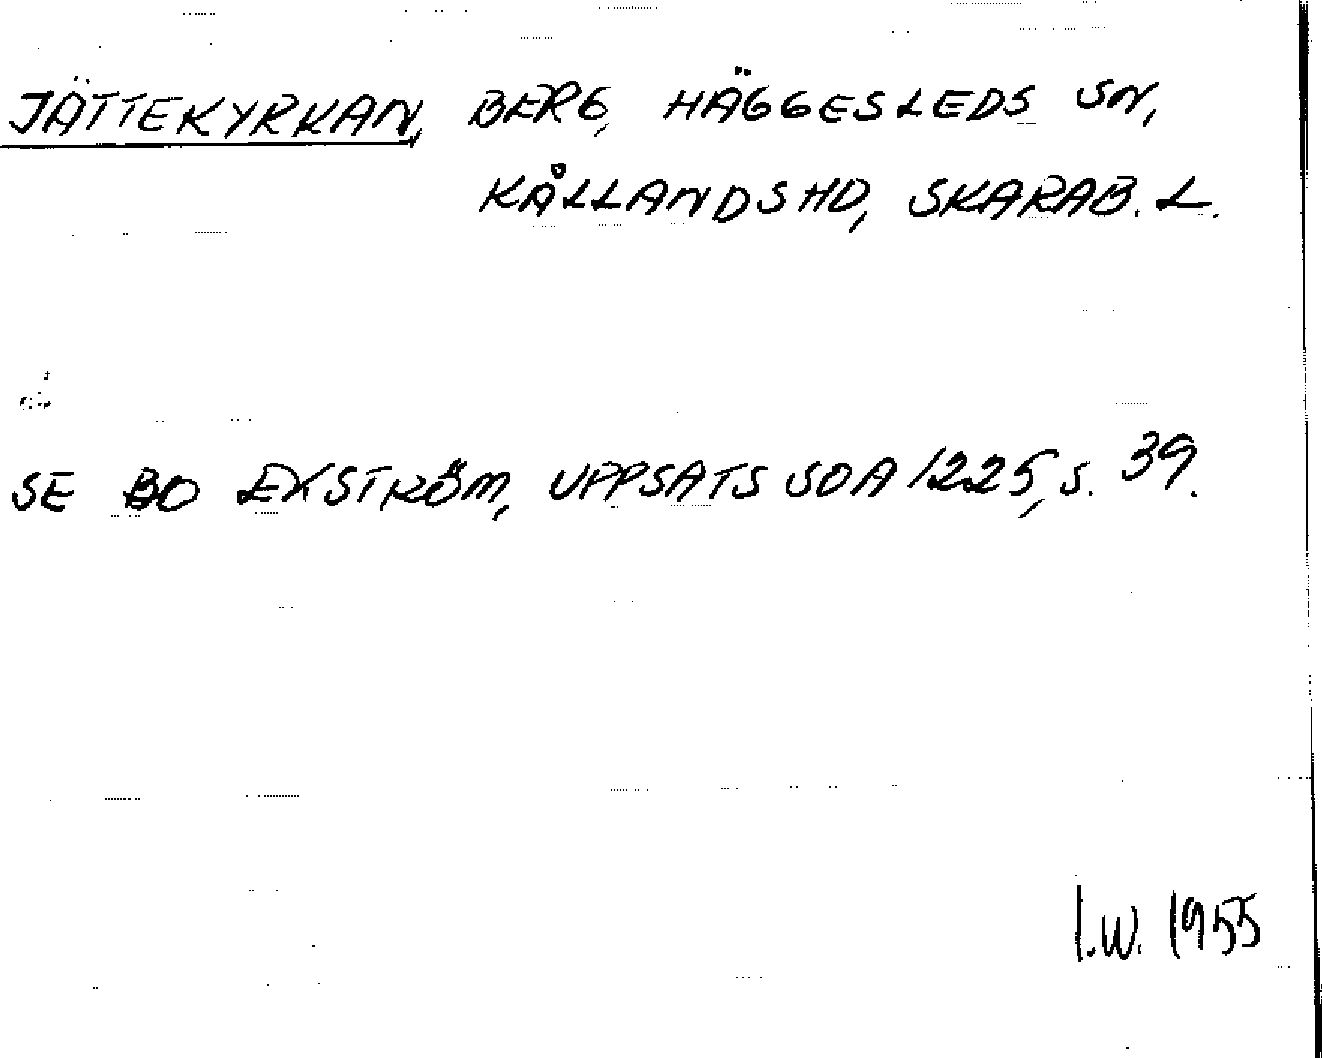 JÄTTEKYRKAN, BERG, HÄGGESLEDS SN,
KÅLLANDS HD, SKARAB. L.
SE BO EKSTRÖM, UPPSATS SOA 1225, S. 39.
I.W. 1955